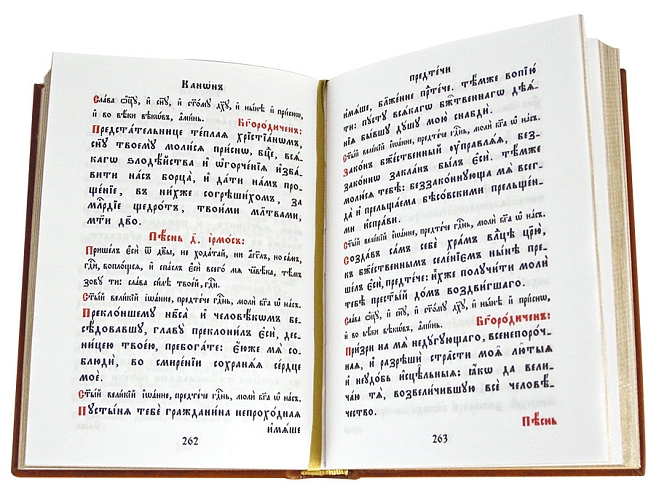 Канѡ́нъ
Сла́ва ѻ҆ц҃ꙋ̀, и҆ сн҃ꙋ, и҆ ст҃о́мꙋ дх҃ꙋ, и҆ ны́нѣ и҆ при́снѡ,
и҆ во вѣ́ки вѣкѡ́въ, а҆ми́нь.
Бг҃оро́диченъ:
Предста́тельнице те́плаѧ хрⷭ҇тїа́нѡмъ,
сн҃ꙋ твоемꙋ̀ моли́сѧ при́снѡ, бцⷣе, всѧ́-
кагѡ ѕлодѣ́йства и҆ ѡ҆горче́нїѧ и҆зба́-
вити на́съ борца̀, и҆ да́ти на́мъ про-
ще́нїе, въ ни́хже согрѣши́хомъ, за
млⷭ҇рдїе щедро́тъ, твои́ми мл҃твами,
мт҃и дв҃о.
Пѣ́снь д҃. І҆рмо́съ:
Прише́лъ є҆сѝ ѿ дв҃ы, не хода́тай, ни а҆́гг҃лъ, но са́мъ,
гдⷭ҇и, вопло́щьсѧ, и҆ спа́слъ є҆сѝ всего́ мѧ человѣ́ка, тѣ́мъ
зовꙋ́ ти: сла́ва си́лѣ твое́й, гдⷭ҇и.
Ст҃ы́й вели́кїй і҆ѡа́нне, предте́че гдⷭ҇нь, молѝ бг҃а ѡ҆ на́съ.
Прекло́ншемꙋ нб҃са̀ и҆ человѣ́кѡмъ бе-
сѣ́довавшꙋ, главꙋ̀ преклони́лъ є҆сѝ, дес-
ни́цею твое́ю, пребога́те: є҆́юже мѧ̀ со-
блюдѝ, во смире́нїи сохранѧ́ѧ се́рдце
моѐ.
Ст҃ы́й вели́кїй і҆ѡа́нне, предте́че гдⷭ҇нь, молѝ бг҃а ѡ҆ на́съ.
Пꙋсты́нѧ тебѐ граждани́на непрохо́днаѧ
и҆мѧ́ше
262
предте́чи
и҆мѧ́ше, бл҃же́нне прⷣте́че. тѣ́мже вопїю́
ти: пꙋ́стꙋ всѧ́кагѡ бжⷭ҇твеннагѡ дѣѧ́-
нїѧ бы́вшꙋ дꙋ́шꙋ мою̀ снабдѝ.
Ст҃ы́й вели́кїй і҆ѡа́нне, предте́че гдⷭ҇нь, молѝ бг҃а ѡ҆ на́съ.
Зако́нъ бжⷭ҇твенный ᲂу҆правлѧ́ѧ, без-
зако́ннѡ закла́нъ бы́лъ є҆сѝ. тѣ́мже
моли́сѧ тебѣ̀: беззако́ннꙋющa мѧ̀ всег-
да̀ и҆ прельща́ема бѣсо́вскими прельще́нь-
ми и҆спра́ви.
Ст҃ы́й вели́кїй і҆ѡа́нне, предте́че гдⷭ҇нь, молѝ бг҃а ѡ҆ на́съ.
Созда́въ са́мъ себѐ хра́мъ вѧ́ще цр҃ю̀,
къ бжⷭ҇твеннымъ селе́нїємъ ны́нѣ пре-
ше́лъ є҆сѝ, предте́че: и҆́хже полꙋчи́ти молѝ
тебѣ̀ прест҃ы́й до́мъ воздви́гшаго.
Сла́ва ѻ҆ц҃ꙋ̀, и҆ сн҃ꙋ, и҆ ст҃о́мꙋ дх҃ꙋ, и҆ ны́нѣ и҆ при́снѡ,
и҆ во вѣ́ки вѣкѡ́въ, а҆ми́нь.
Бг҃оро́диченъ:
При́зри на мѧ̀ недꙋ́гꙋющаго, всенепоро́ч-
наѧ, и҆ разрѣшѝ стра̑сти моѧ̑ лю̑тыѧ
и҆ неꙋдо́бь и҆сцѣ̑льныѧ: ꙗ҆́кѡ да вели-
ча́ю тѧ̀, возвели́чившꙋю всѐ человѣ́-
чество.
Пѣ́снь
263